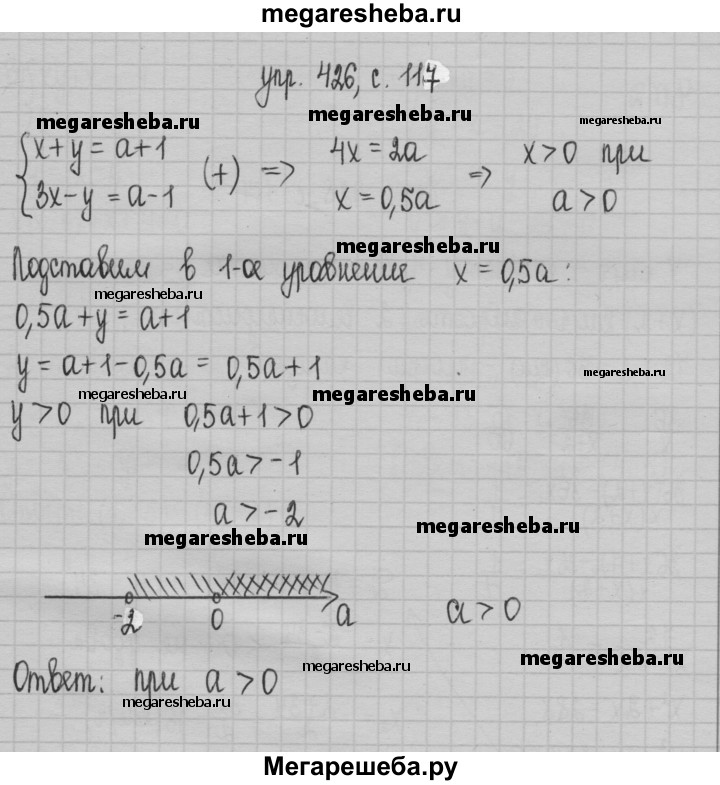 megaresheba.ru
упр. 426, с. 117
megaresheba.ru megaresheba.ru megaresheba.ru
{x+y=a+1
{3x-y=a-1 (+) => 4x=2a
x=0,5a => x>0 при
a>0
megaresheba.ru
Подставим в 1-ое уравнение x=0,5a:
megaresheba.ru
0,5a+y=a+1
y=a+1-0,5a=0,5a+1
megaresheba.ru megaresheba.ru megaresheba.ru
y>0 при 0,5a+1>0
0,5a>-1
a>-2
megaresheba.ru megaresheba.ru
-2 0 a a>0
megaresheba.ru megaresheba.ru
Ответ: при a>0
megaresheba.ru
Мегарешеба.ру